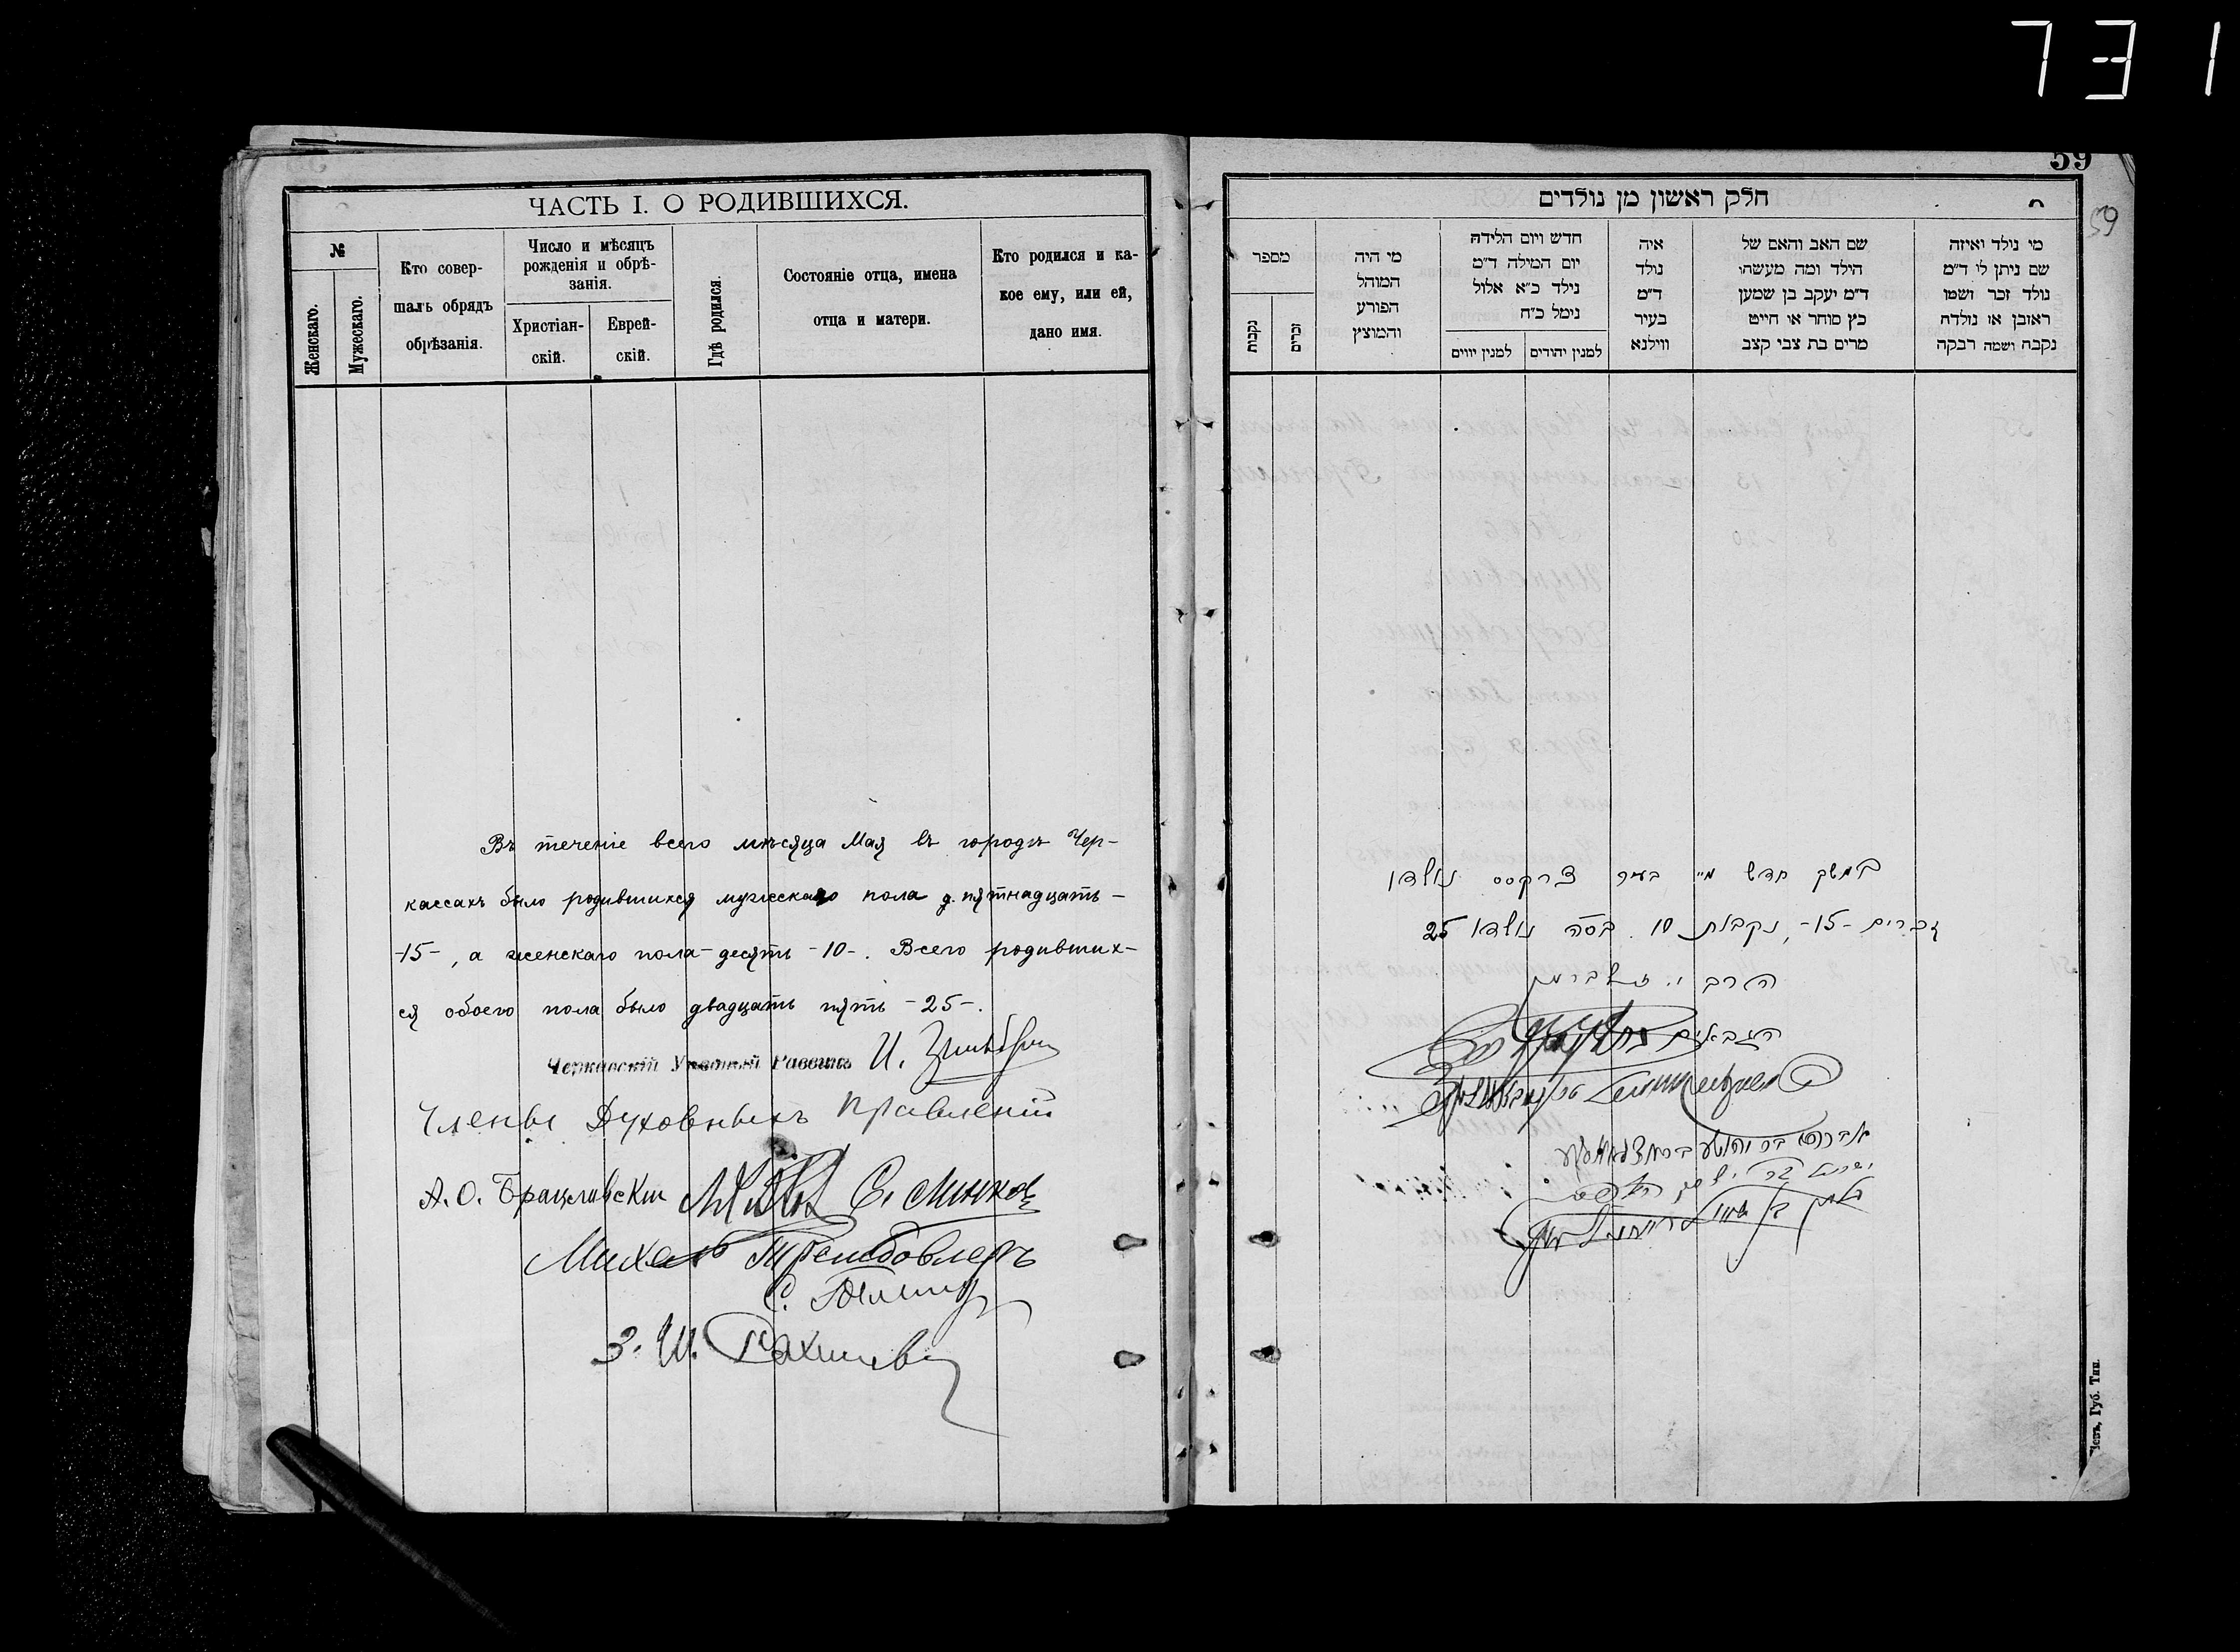 731
ЧАСТЬ I. О РОДИВШИХСЯ.
№
Женскаго.
Мужескаго.
Кто совер-
шалъ обрядъ
обрѣзанія.
Число и мѣсяцъ
рожденія и обрѣ-
занія.
Христіан-
скій.
Еврей-
скій.
Гдѣ родился.
Состояніе отца, имена
отца и матери.
Кто родился и ка-
кое ему, или ей,
дано имя.
Въ теченіе всего мѣсяца Мая въ городѣ Чер-
кассахъ было родившихся мужескаго пола д. пятнадцать -
-15-, а женскаго пола - десять -10-. Всего родивших-
ся обоего пола было двадцать пять -25-.
Черкасскій Уѣздный Раввинъ И.
Члены Духовныхъ Правленій
А. О. Брацлавскій С. Минковъ
Михель Трембовлеръ
С.
З. Ш. Рахил
59
59
חלק ראשון מן נולדים
מי נולד ואיזה
שם ניתן לו ד״מ
נולד זכר ושמו
ראובן או נולדה
נקבה ושמה רבקה
שם האב והאם של
הילד ומה מעשהו
ד״מ יעקב בן שמען
כץ סוחר או חייט
מרים בת צבי קצב
איה
נולד
ד״מ
בעיר
ווילנא
חדש ויום הלידה
יום המילה ד״מ
נילד כ״א אלול
נימל כ״ח
למנין יהודים
למנין יווים
מי היה
המוהל
הפורע
והמוצץ
מספר
זכרים
נקבות
במשך חדש מיי בעיר צרקסס נולדו
זכרים -15-, נקבות 10. בסה נולדו 25
הרב י. זילברמן
הגבאים
Кіевъ, Губ. Тип.